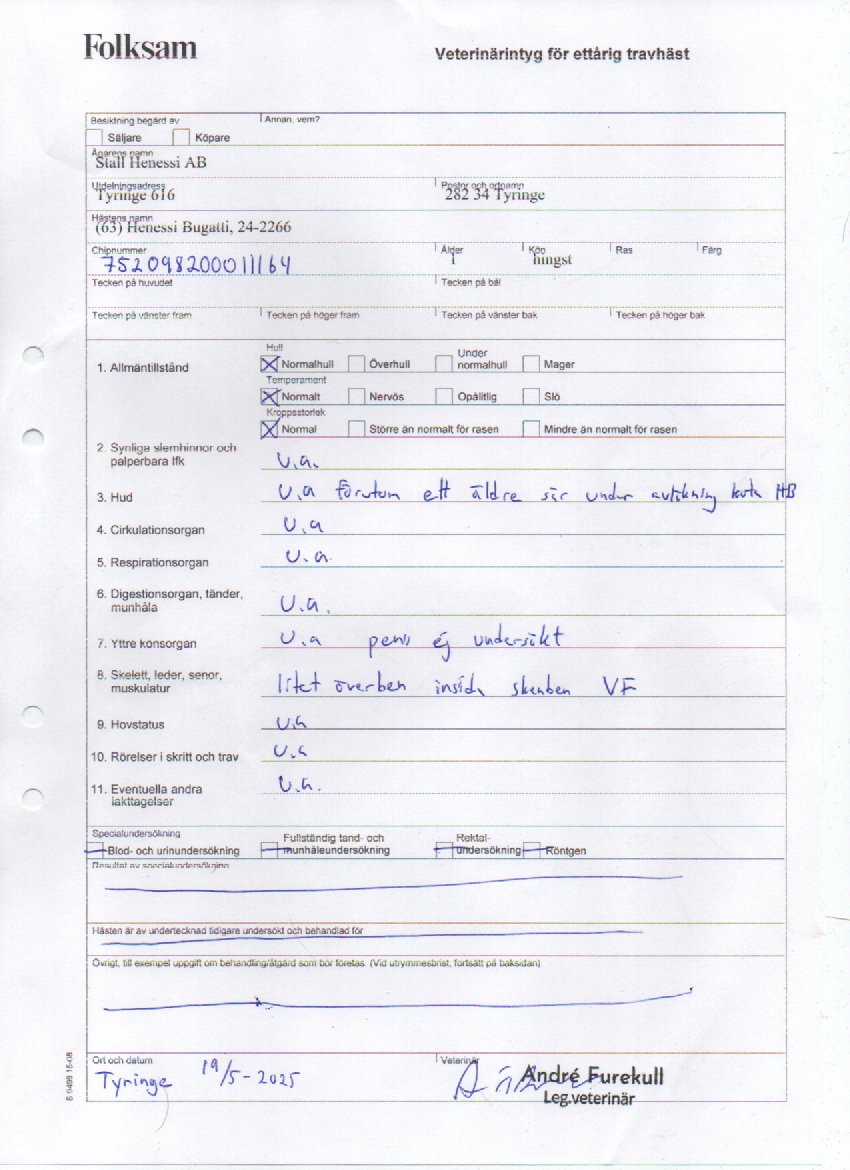 Folksam
Veterinärintyg för ettårig travhäst
Besiktning begärd av
Annan, vem?
Säljare Köpare
Ägarens namn
Stall Henessi AB
Utdelningsadress Postnr och ortnamn
Tyringe 616 282 34 Tyringe
Hästens namn
(63) Henessi Bugatti, 24-2266
Chipnummer Ålder Kön Ras Färg
752098200011164 1 hingst
Tecken på huvudet Tecken på bål
Tecken på vänster fram Tecken på höger fram Tecken på vänster bak Tecken på höger bak
Hull
1. Allmäntillstånd Normalhull Överhull Under normalhull Mager
Temperament
Normalt Nervös Opålitlig Slö
Kroppsstorlek
Normal Större än normalt för rasen Mindre än normalt för rasen
2. Synliga slemhinnor och
palperbara lfk u.a.
3. Hud u.a förutom ett äldre sår under kota HB
4. Cirkulationsorgan u.a
5. Respirationsorgan u.a.
6. Digestionsorgan, tänder,
munhåla u.a.
7. Yttre könsorgan u.a penis ej undersökt
8. Skelett, leder, senor,
muskulatur litet överben insida skenben VF
9. Hovstatus u.a
10. Rörelser i skritt och trav u.a
11. Eventuella andra
iakttagelser u.a.
Specialundersökning
Blod- och urinundersökning Fullständig tand- och munhåleundersökning Rektal-undersökning Röntgen
Resultat av specialundersökning
Hästen är av undertecknad tidigare undersökt och behandlad för
Övrigt, till exempel uppgift om behandling/åtgärd som bör företas. (Vid utrymmesbrist, fortsätt på baksidan)
Ort och datum Veterinär
Tyringe 19/5-2025 André Furekull
Leg.veterinär
S 9499 15-08